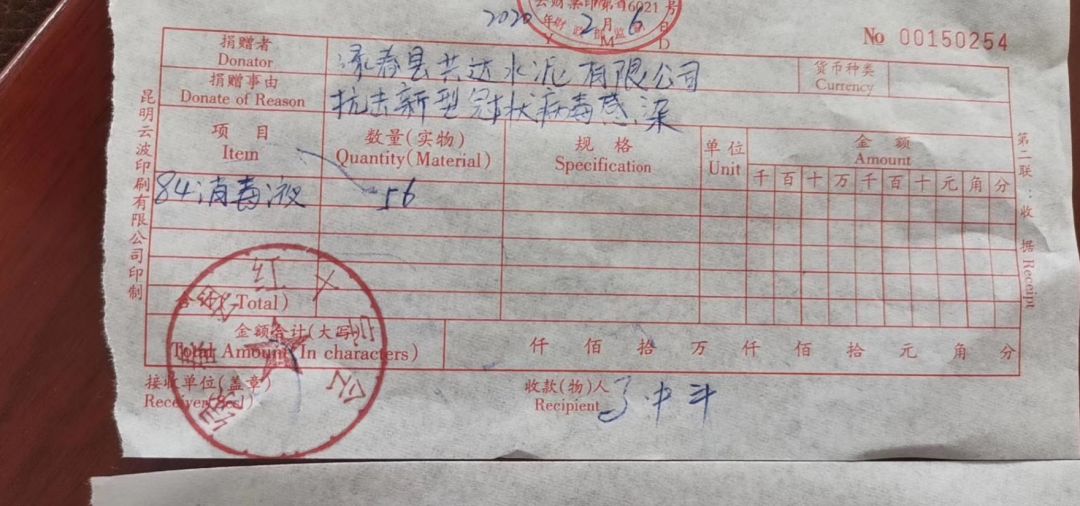 2020 年 2 月 6 日
Y M D
No 00150254
捐赠者
Donator
绿春县共达水泥有限公司
货币种类
Currency
捐赠事由
Donate of Reason
抗击新型冠状病毒感染
项 目
Item
数量(实物)
Quantity(Material)
规 格
Specification
单位
Unit
金 额
Amount
千 百 十 万 千 百 十 元 角 分
84消毒液 56
Total)
金额合计(大写)
Total Amount(In characters)
仟 佰 拾 万 仟 佰 拾 元 角 分
接收单位(盖章)
Receiver(Seal)
收款(物)人
Recipient
昆明云波印刷有限公司印制
第二联:收据 Receipt